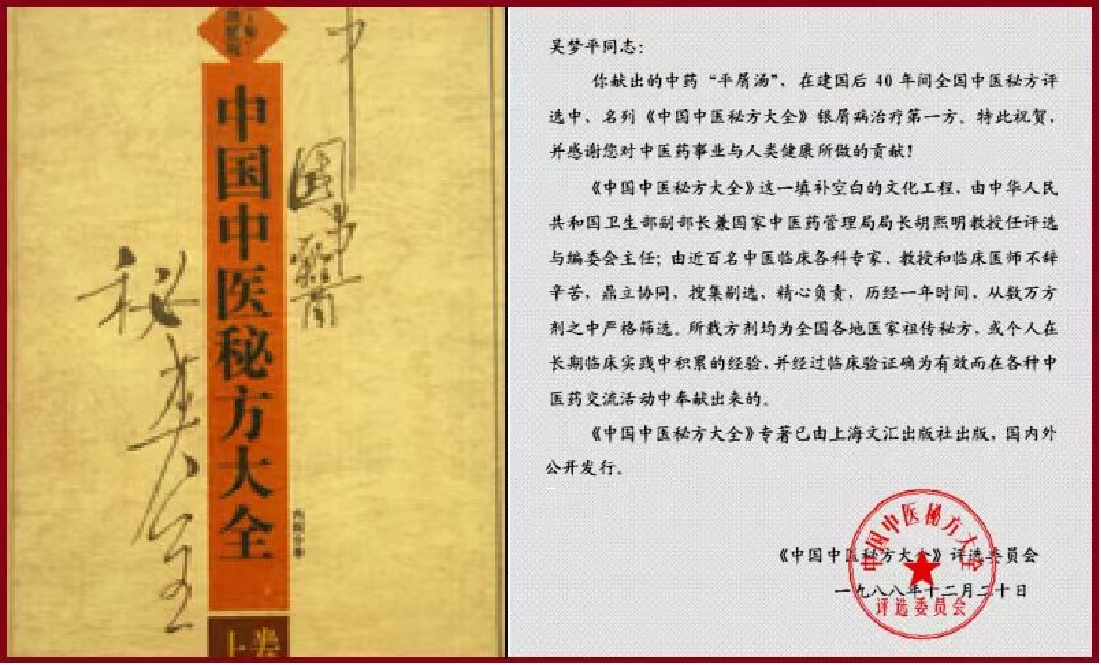 中国中医秘方大全
上卷
中国中医
秘方大全
吴梦平同志：
你献出的中药“平屑汤”，在建国后 40 年间全国中医秘方评
选中、名列《中国中医秘方大全》银屑病治疗第一方。特此祝贺，
并感谢您对中医药事业与人类健康所做的贡献！
《中国中医秘方大全》这一填补空白的文化工程，由中华人民
共和国卫生部副部长兼国家中医药管理局局长胡熙明教授任评选
与编委会主任；由近百名中医临床各科专家、教授和临床医师不辞
辛苦、鼎立协同，搜集剔选、精心负责，历经一年时间，从数万方
剂之中严格筛选。所载方剂均为全国各地医家祖传秘方，或个人在
长期临床实践中积累的经验，并经过临床验证确为有效而在各种中
医药交流活动中奉献出来的。
《中国中医秘方大全》专著已由上海文汇出版社出版，国内外
公开发行。
《中国中医秘方大全》评选委员会
一九八八年十二月二十日
中国中医秘方大全
评选委员会